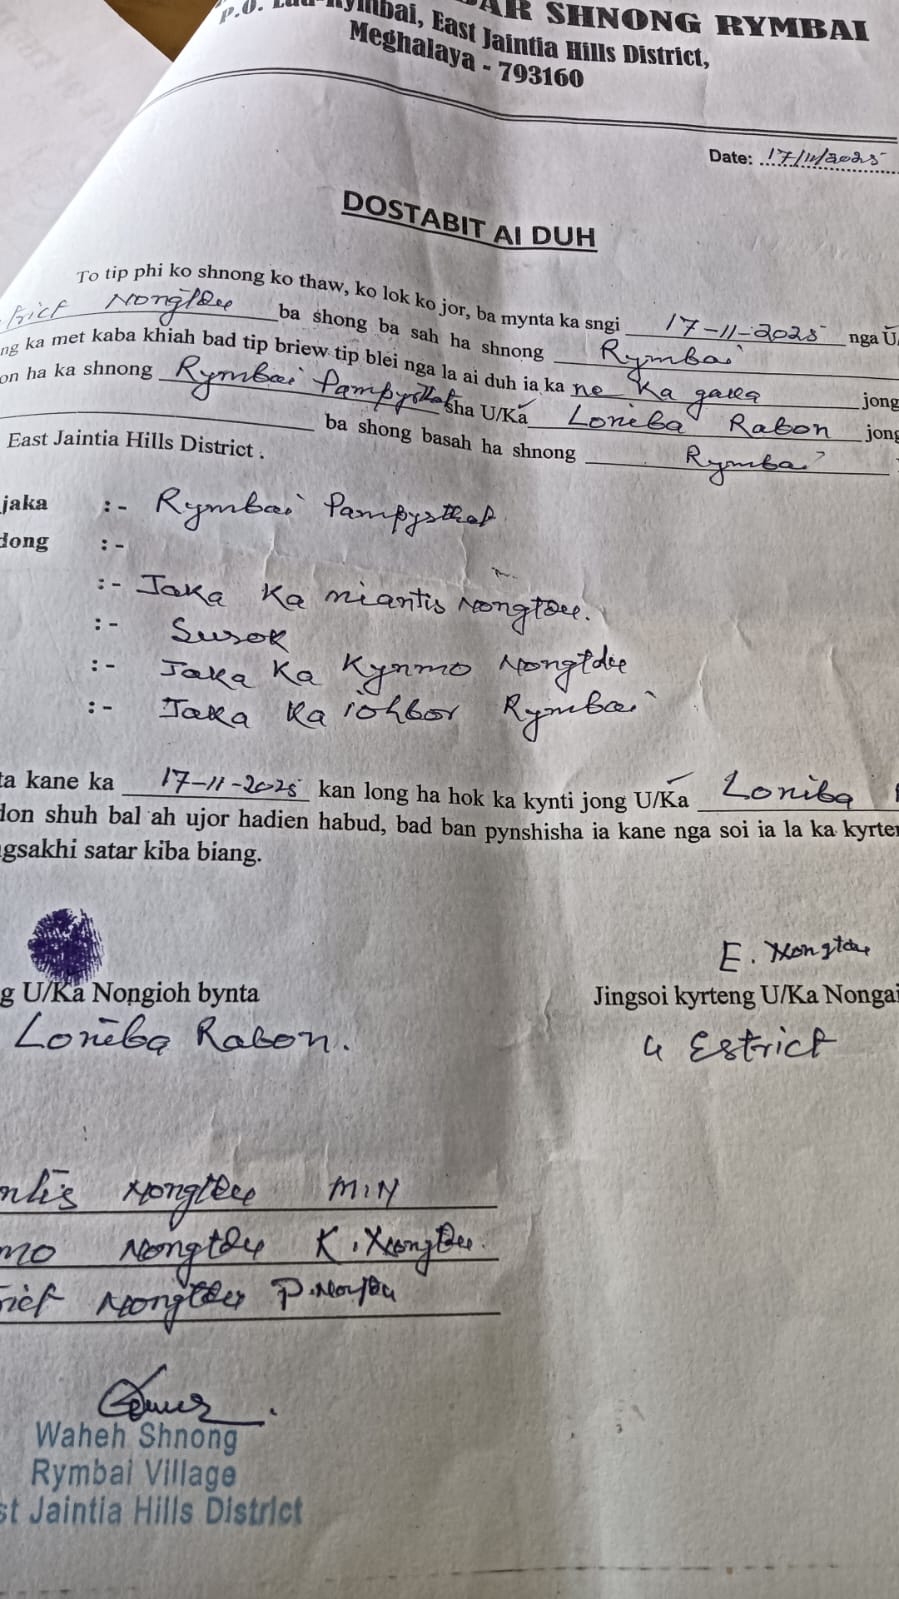 BAR SHNONG RYMBAI
P.O. Lad-Rymbai, East Jaintia Hills District,
Meghalaya - 793160
Date: 17/11/2025
DOSTABIT AI DUH
To tip phi ko shnong ko thaw, ko lok ko jor, ba mynta ka sngi 17-11-2025 nga U
trict Nongtdu ba shong ba sah ha shnong Rymbai
ng ka met kaba khiah bad tip briew tip blei nga la ai duh ia ka ne ka jaka jong
on ha ka shnong Rymbai Pampysthat sha U/Ka Loniba Rabon jong
ba shong basah ha shnong Rymbai
East Jaintia Hills District.
jaka :- Rymbai Pampysthat
dong :-
:- Jaka Ka miantis Nongtdu.
:- Surok
:- Jaka Ka Kynmo Nongtdu
:- Jaka Ka iohbor Rymbai
ta kane ka 17-11-2025 kan long ha hok ka kynti jong U/Ka Loniba
don shuh bal ah ujor hadien habud, bad ban pynshisha ia kane nga soi ia la ka kyrte
gsakhi satar kiba biang.
E. Nongtdu
g U/Ka Nongioh bynta
Jingsoi kyrteng U/Ka Nongai
Loniba Rabon.
U Estrict
ntis Nongtdu M.N
mo Nongtdu K. Nongtdu.
rict Nongtdu P. Nongtdu
Waheh Shnong
Rymbai Village
st Jaintia Hills District